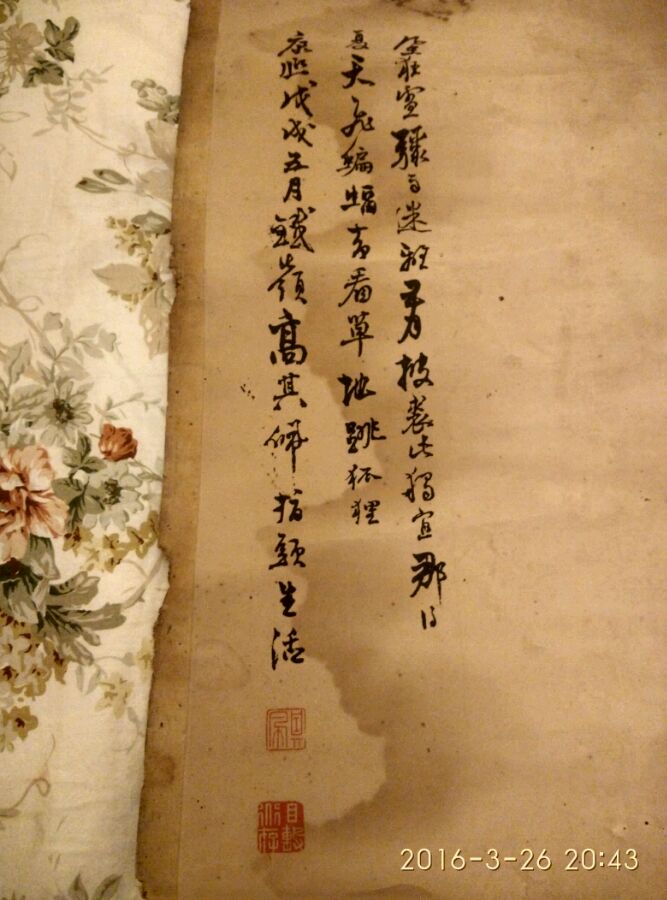 雪驟迷離身披裘此獨宜那得
夏天飛蝙蝠看草地跳狐狸
康熙戊戌五月鐵嶺高其佩指頭生活
2016-3-26 20:43